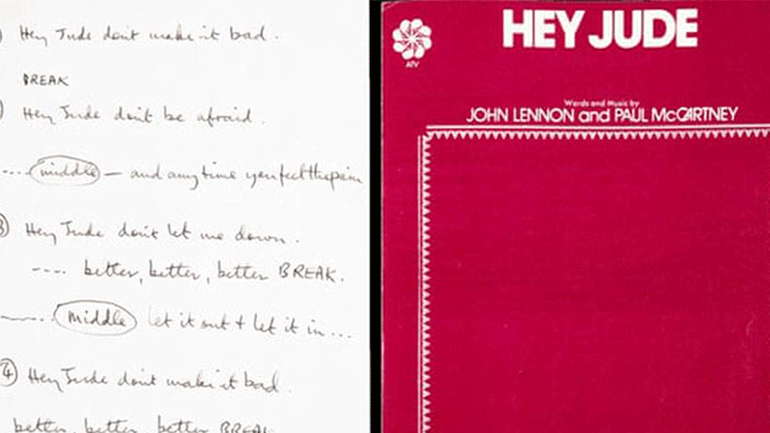 ) Hey Jude don't make it bad.
BREAK
) Hey Jude don't be afraid.
.... middle — and anytime you feel the pain
3) Hey Jude don't let me down.
.... better, better, better BREAK.
....... middle let it out + let it in ...
4 Hey Jude don't make it bad.
better, better, better BREAK
HEY JUDE
ATV
Words and Music by
JOHN LENNON and PAUL McCARTNEY